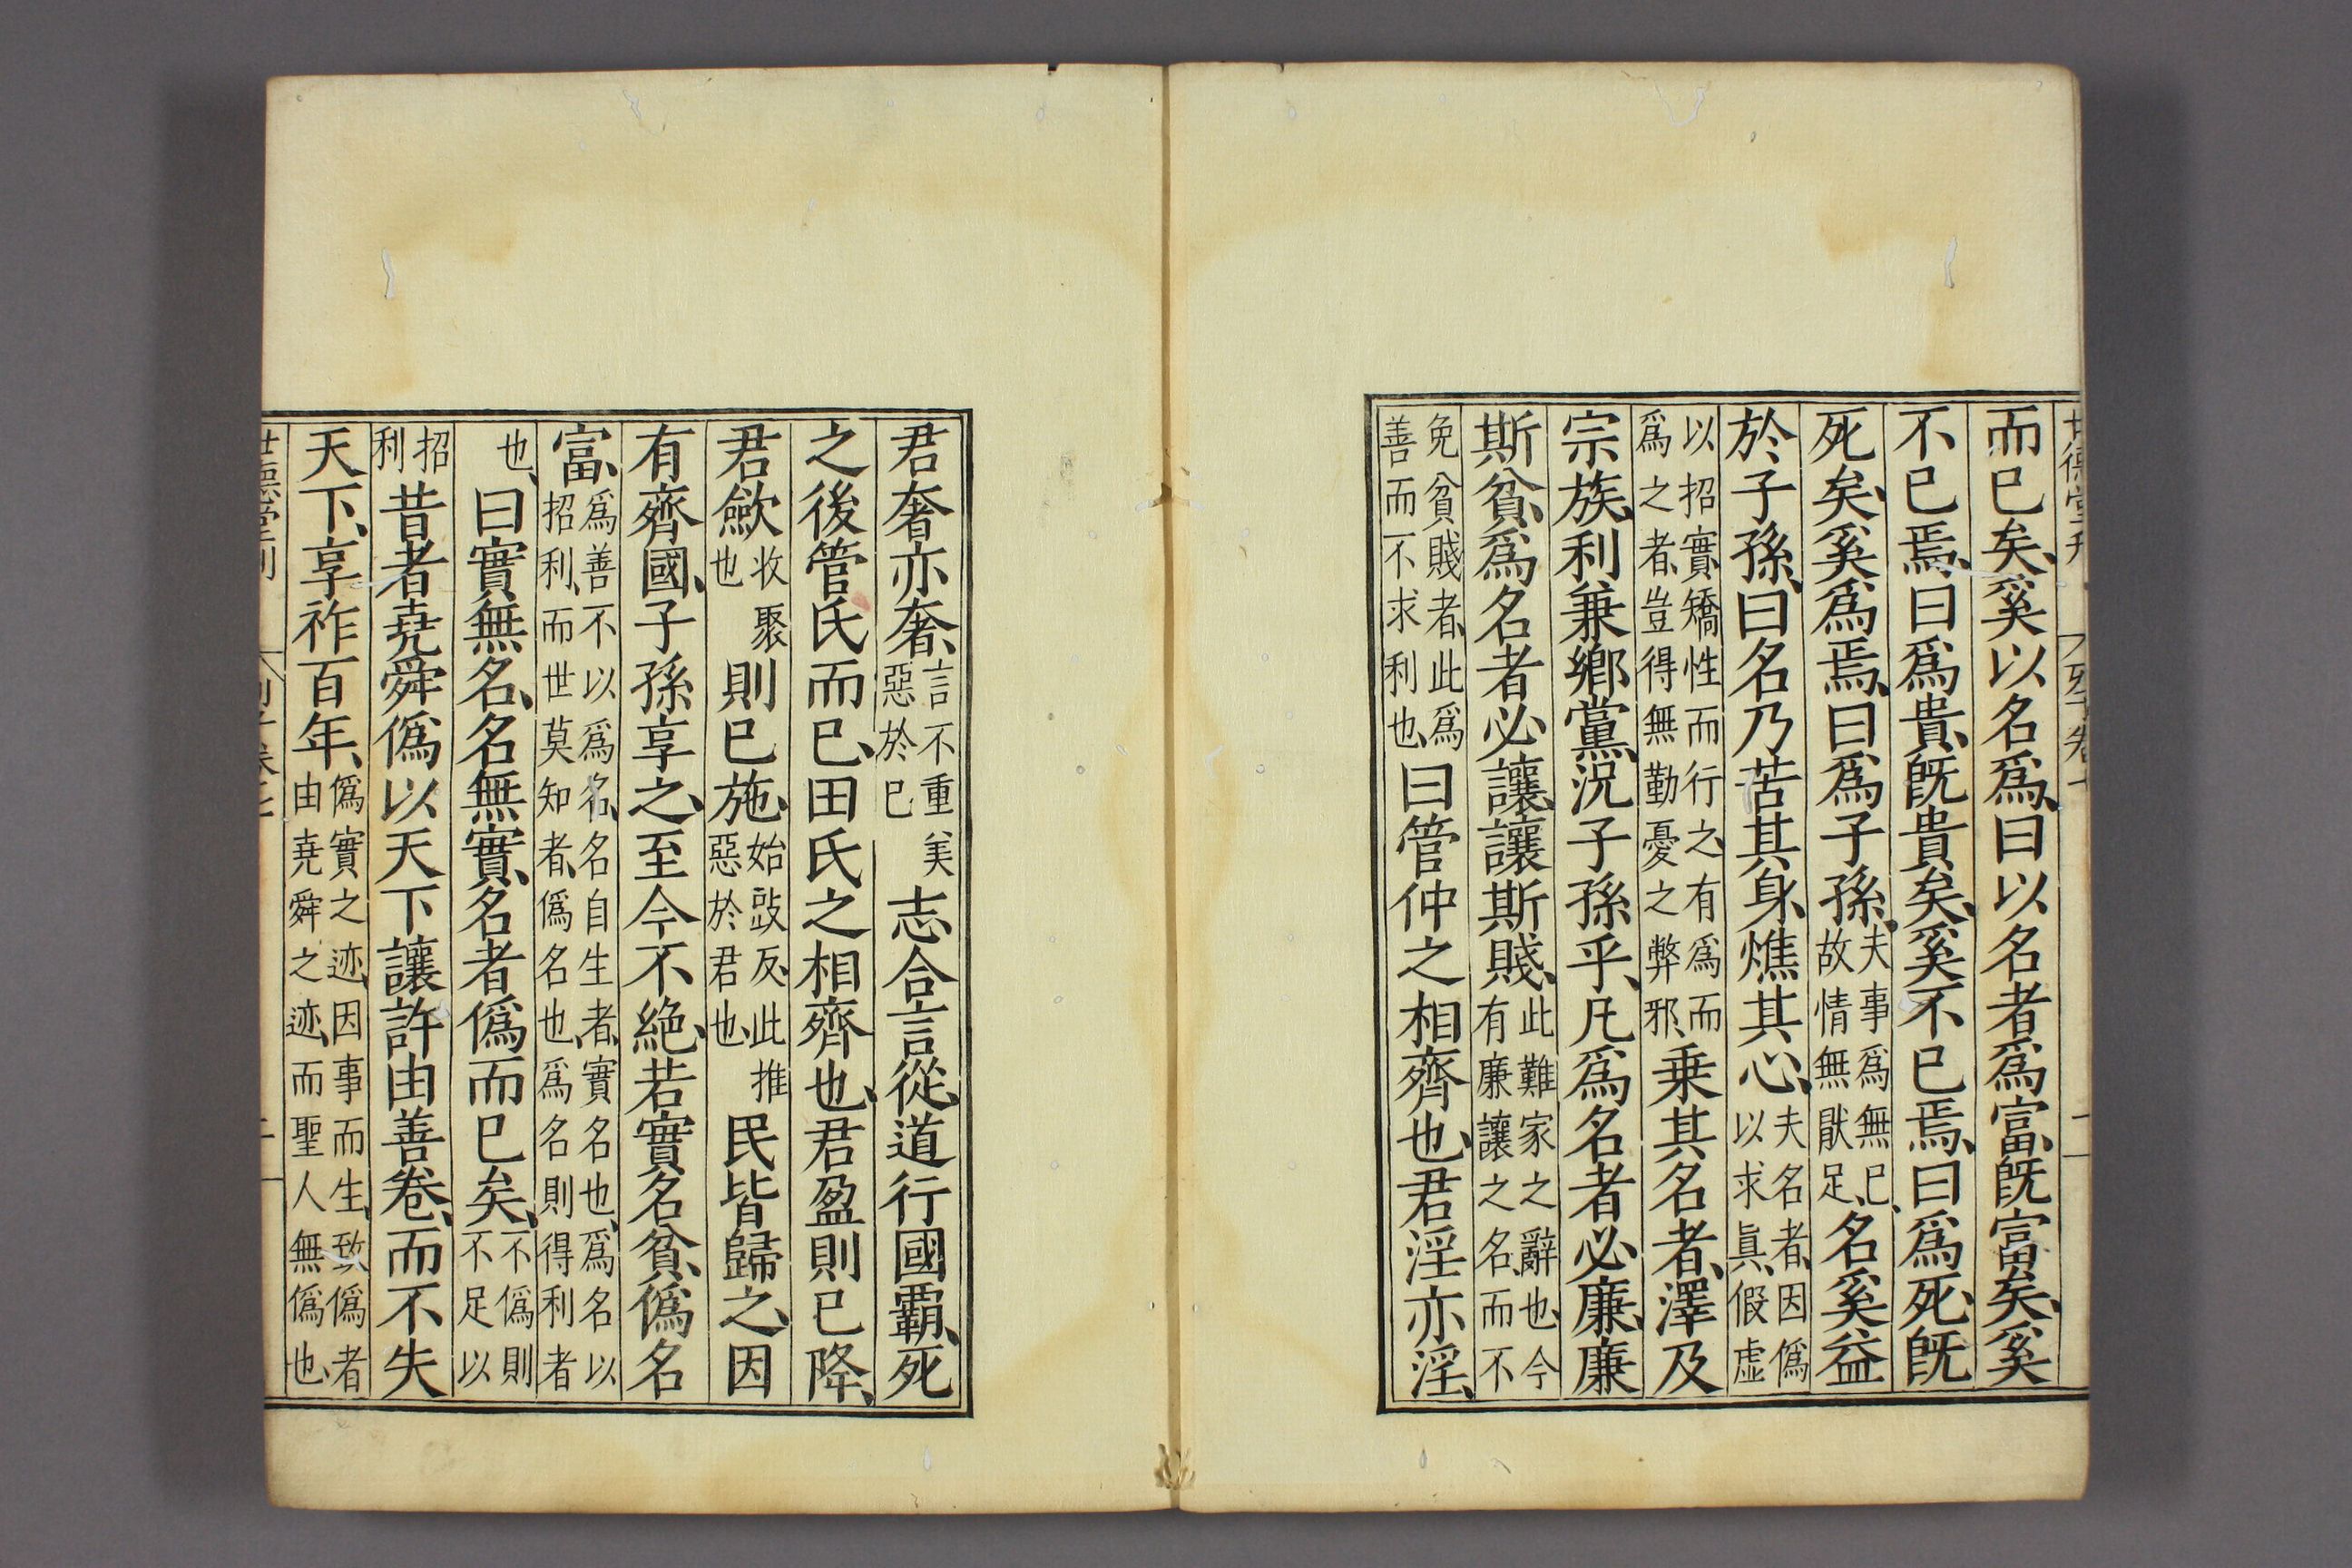 而已矣、奚以名爲、曰以名者爲富、既富矣、奚
不已焉、曰爲貴、既貴矣、奚不已焉、曰爲死、既
死矣、奚爲焉、曰爲子孫、夫事爲無已、故情無猒足、名奚益
於子孫、曰名乃苦其身、燋其心、夫名者、因僞以求眞、假虛
以招實、矯性而行之、有爲而爲之者、豈得無勤憂之弊邪、乗其名者、澤及
宗族、利兼鄉黨、況子孫乎、凡爲名者必廉、廉
斯貧、爲名者必讓、讓斯賤、此難家之辭也、今有廉讓之名、而不
免貧賤者、此爲善而不求利也、曰管仲之相齊也、君淫亦淫、
君奢亦奢、言不重美惡於已志合言從、道行國霸、死
之後管氏而已、田氏之相齊也、君盈則已降、
君歛收聚也則已施、始豉反、此推惡於君也、民皆歸之、因
有齊國、子孫享之、至今不絶、若實名貧、僞名
富、爲善不以爲名、名自生者、實名也、爲名以招利、而世莫知者、僞名也、爲名則得利者
也、曰實無名、名無實、名者僞而已矣、不僞則不足以
招利昔者堯舜僞以天下讓許由善卷、而不失
天下、享祚百年、僞實之迹、因事而生、致僞者由堯舜之迹、而聖人無僞也、